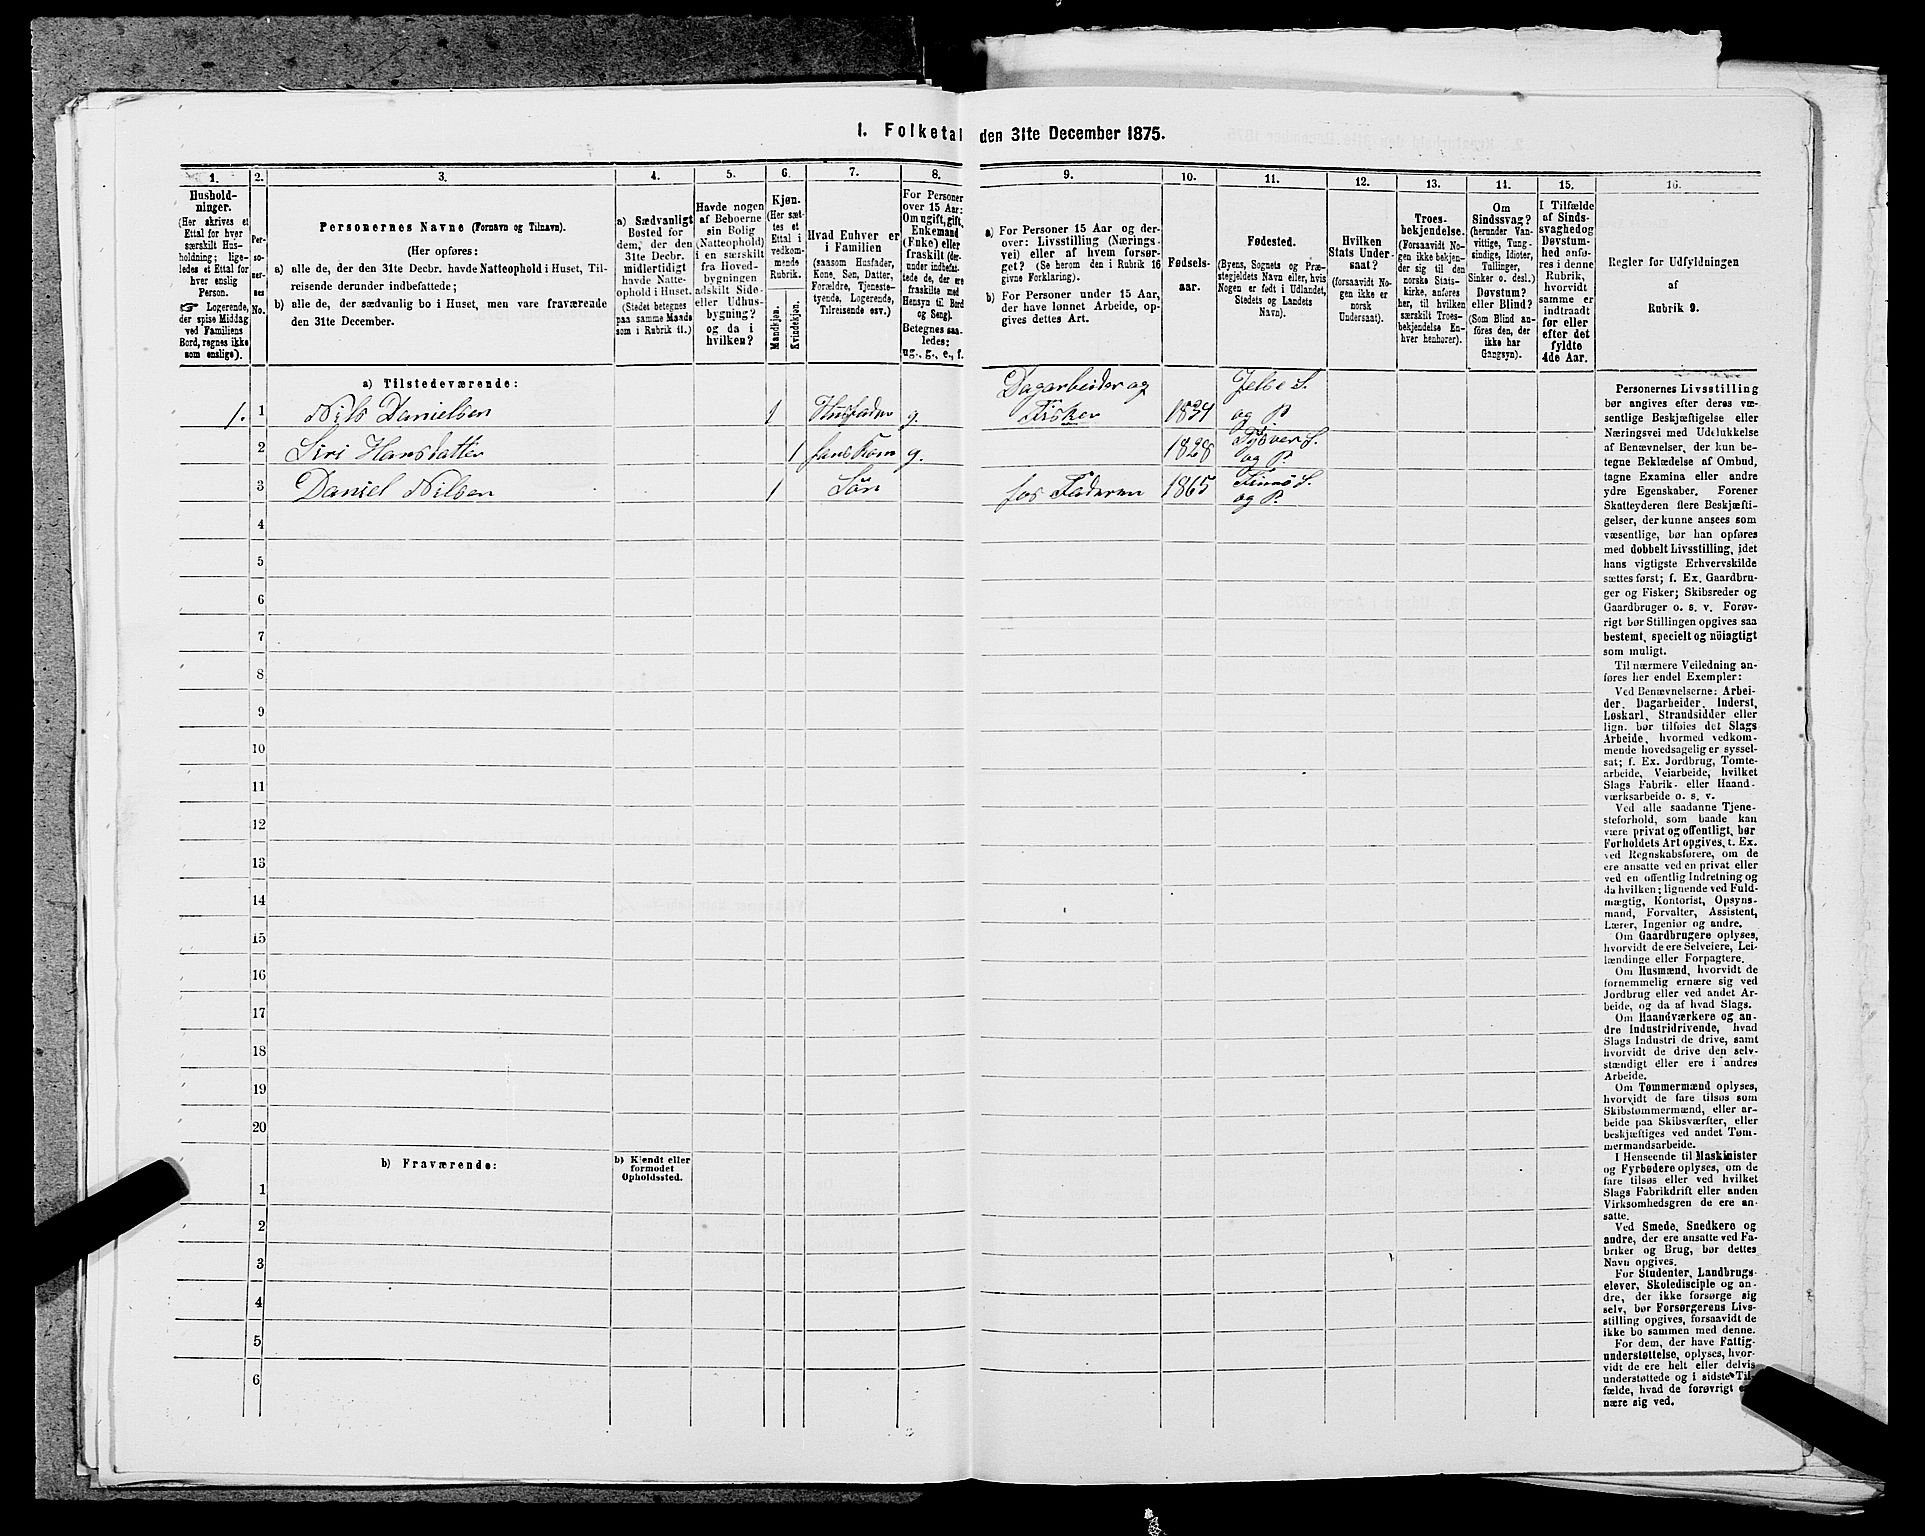 1. Folketal den 31te December 1875.
1.
2.
3.
4.
5.
6.
7.
8.
9.
10.
11.
12.
13.
14.
15.
16.
Hushold-
ninger.
(Her skrives et
Ettal for hver
særskilt Hus-
holdning; lige-
ledes et Ettal for
hver enslig
Person.
☞ Logerende,
der spise Middag
ved Familiens
Bord, regnes ikke
som enslige).
Per-
so-
ner-
nes
No.
Personernes Navne (Fornavn og Tilnavn).
(Her opføres:
a) alle de, der den 31te Decbr. havde Natteophold i Huset, Til-
reisende derunder indbefattede;
b) alle de, der sædvanlig bo i Huset, men vare fraværende
den 31te December.
a) Sædvanligt
Bosted for
dem, der den
31te Decbr.
midlertidigt
havde Natte-
ophold i Huset.
(Stedet betegnes
paa samme Maade
som i Rubrik 11.)
Havde nogen
af Beboerne
sin Bolig
(Natteophold)
i en særskilt
fra Hoved-
bygningen
adskilt Side-
eller Udhus-
bygning?
og da i
hvilken?
Kjøn.
(Her sæt-
tes et
Ettal i
vedkom-
mende
Rubrik.
Mandkjøn.
Kvindekjøn.
Hvad Enhver er
i Familien
(saasom Husfader,
Kone, Søn, Datter,
Forældre, Tjeneste-
tyende, Logerende,
Tilreisende osv.)
For Personer
over 15 Aar:
Om ugift, gift,
Enkemand
(Enke) eller
fraskilt (der-
under indbefat-
tede de, der ere
fraskilte med
Hensyn til Bord
og Seng).
Betegnes saa-
ledes:
ug., g., e., f.
a) For Personer 15 Aar og der-
over: Livsstilling (Nærings-
vei) eller af hvem forsør-
get? (Se herom den i Rubrik 16
givne Forklaring).
b) For Personer under 15 Aar,
der have lønnet Arbeide, op-
gives dettes Art.
Fødsels-
aar.
Fødested.
(Byens, Sognets og Præ-
stegjeldets Navn eller, hvis
Nogen er født i Udlandet,
Stedets og Landets
Navn).
Hvilken
Stats Under-
saat?
(forsaavidt No-
gen ikke er
norsk
Undersaat).
Troes-
bekjendelse.
(Forsaavidt No-
gen ikke bekjen-
der sig til den
norske Stats-
kirke, anføres
her, til hvilken
særskilt Troes-
bekjendelse En-
hver henhører).
Om
Sindssvag?
(herunder Van-
vittige, Tung-
sindige, Idioter,
Tullinger,
Sinker o. desl.)
Døvstum?
eller Blind?
(Som Blind an-
føres den, der
ikke har
Gangsyn).
I Tilfælde
af Sinds-
svaghed og
Døvstum-
hed anfø-
res i denne
Rubrik,
hvorvidt
samme er
indtraadt
før eller
efter det
fyldte
4de Aar.
Regler for Udfyldningen
af
Rubrik 9.
a) Tilstedeværende:
1. 1 Nils Danielsen 1 Husfader g. Dagarbeider og Fisker 1834 Jelse S. og P.
2 Siri Hansdatter 1 hans Kone g. 1828 Tysvær S. og P.
3 Daniel Nilsen 1 Søn hos Faderen 1865 Finnø S. og P.
4
5
6
7
8
9
10
11
12
13
14
15
16
17
18
19
20
b) Fraværende:
b) Kjendt eller
formodet
Opholdssted.
1
2
3
4
5
6
Personernes Livsstilling
bør angives efter deres væ-
sentlige Beskjæftigelse eller
Næringsvei med Udelukkelse
af Benævnelser, der kun be-
tegne Beklædelse af Ombud,
tagne Examina eller andre
ydre Egenskaber. Forener
Skatteyderen flere Beskjæfti-
gelser, der kunne ansees som
væsentlige, bør han opføres
med dobbelt Livsstilling, idet
hans vigtigste Erhvervskilde
sættes først; f. Ex. Gaardbru-
ger og Fisker; Skibsreder og
Gaardbruger o. s. v. Forøv-
rigt bør Stillingen opgives saa
bestemt, specielt og nöiagtigt
som muligt.
Til nærmere Veiledning an-
føres her endel Exempler:
Ved Benævnelserne: Arbei-
der, Dagarbeider, Inderst,
Løskarl, Strandsidder eller
lign. bør tilføies det Slags
Arbeide, hvormed vedkom-
mende hovedsagelig er syssel-
sat; f. Ex. Jordbrug, Tomte-
arbeide, Veiarbeide, hvilket
Slags Fabrik- eller Haand-
værksarbeide o. s. v.
Ved alle saadanne Tjene-
steforhold, som baade kan
være privat og offentligt, bør
Forholdets Art opgives, t. Ex.
ved Regnskabsførere, om de
ere ansatte ved en privat eller
ved en offentlig Indretning og
da hvilken; lignende ved Fuld-
mægtig, Kontorist, Opsyns-
mand, Forvalter, Assistent,
Lærer, Ingeniør og andre.
Om Gaardbrugere oplyses,
hvorvidt de ere Selveiere, Lei-
lændinge eller Forpagtere.
Om Husmænd, hvorvidt de
fornemmelig ernære sig ved
Jordbrug eller ved andet Ar-
beide, og da af hvad Slags.
Om Haandværkere og an-
dre Industridrivende, hvad
Slags Industri de drive, samt
hvorvidt de drive den selv-
stændigt eller ere i andres
Arbeide.
Om Tømmermænd oplyses,
hvorvidt de fare tilsøs som
Skibstømmermænd, eller ar-
beide paa Skibsværfter, eller
beskjæftiges ved andet Tøm-
mermandsarbeide.
I Henseende til Maskinister
og Fyrbødere oplyses, om de
fare tilsøs eller ved hvilket
Slags Fabrikdrift eller anden
Virksomhedsgren de ere an-
satte.
Ved Smede, Snedkere og
andre, der ere ansatte ved Fa-
briker og Brug, bør dettes
Navn opgives.
For Studenter, Landbrugs-
elever, Skoledisciple og an-
dre, der ikke forsørge sig
selv, bør Forsørgerens Livs-
stilling opgives, forsaavidt de
ikke bo sammen med denne.
For dem, der have Fattig-
understøttelse, oplyses, hvor-
vidt de ere helt eller delvis
understøttede og i sidste Til-
fælde, hvad de forøvrigt er-
nære sig ved.